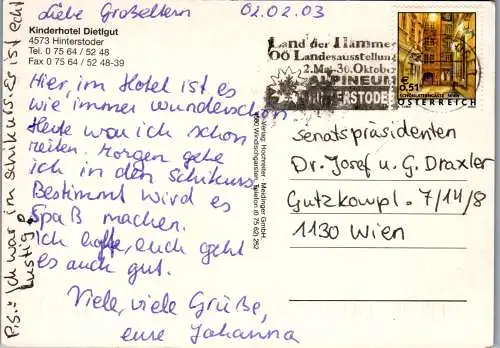 Liebe Großeltern 02.02.03
Kinderhotel Dietlgut
4573 Hinterstoder
Tel. 0 75 64 / 52 48
Fax 0 75 64 / 52 48-39
Hier, im Hotel ist es
wie immer wunderschön
Heute war ich schon
reiten. Morgen gehe
ich in den Schikurs.
Bestimmt wird es
Spaß machen.
Ich hoffe, euch geht
es auch gut.
Viele, viele Grüße,
eure Johanna
P.S.: Ich war im Schikurs. Er ist echt
lustig!
Land der Hämmer
OÖ Landesausstellung
2. Mai-30. Oktober
ALPINEUM
HINTERSTODE
€
0.51
SCHÖNLATERNGASSE · WIEN
ÖSTERREICH
Senatspräsidenten
Dr. Josef u. G. Draxler
Gutzkowpl. 7/14/8
1130 Wien
Verlag: Hochreiter - Medinger GmbH
4580 Windischgarsten, Telefon (0 75 62) 252